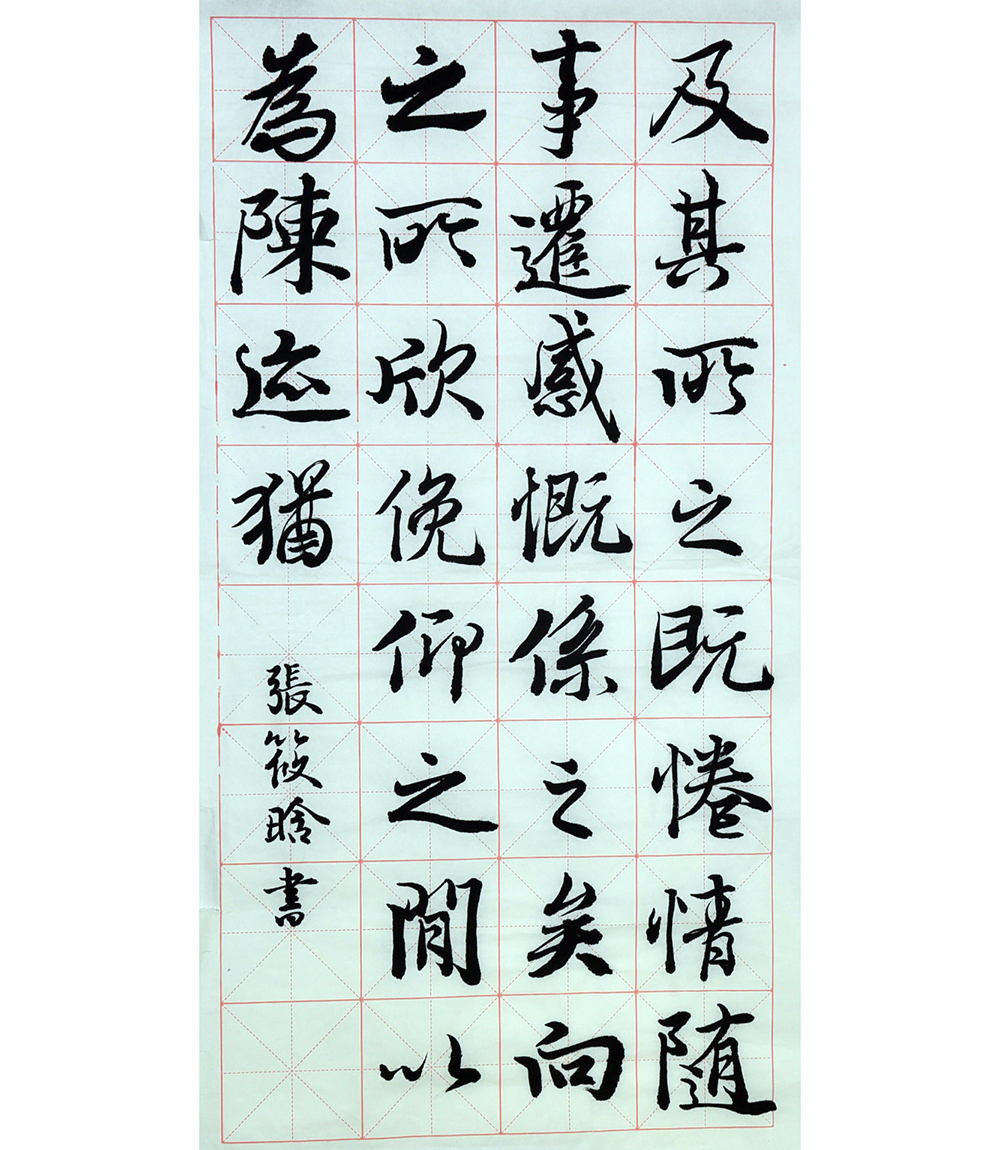 及其所之既惓情随
事遷感慨係之矣向
之所欣俛仰之閒以
為陳迹猶
張筱晗書